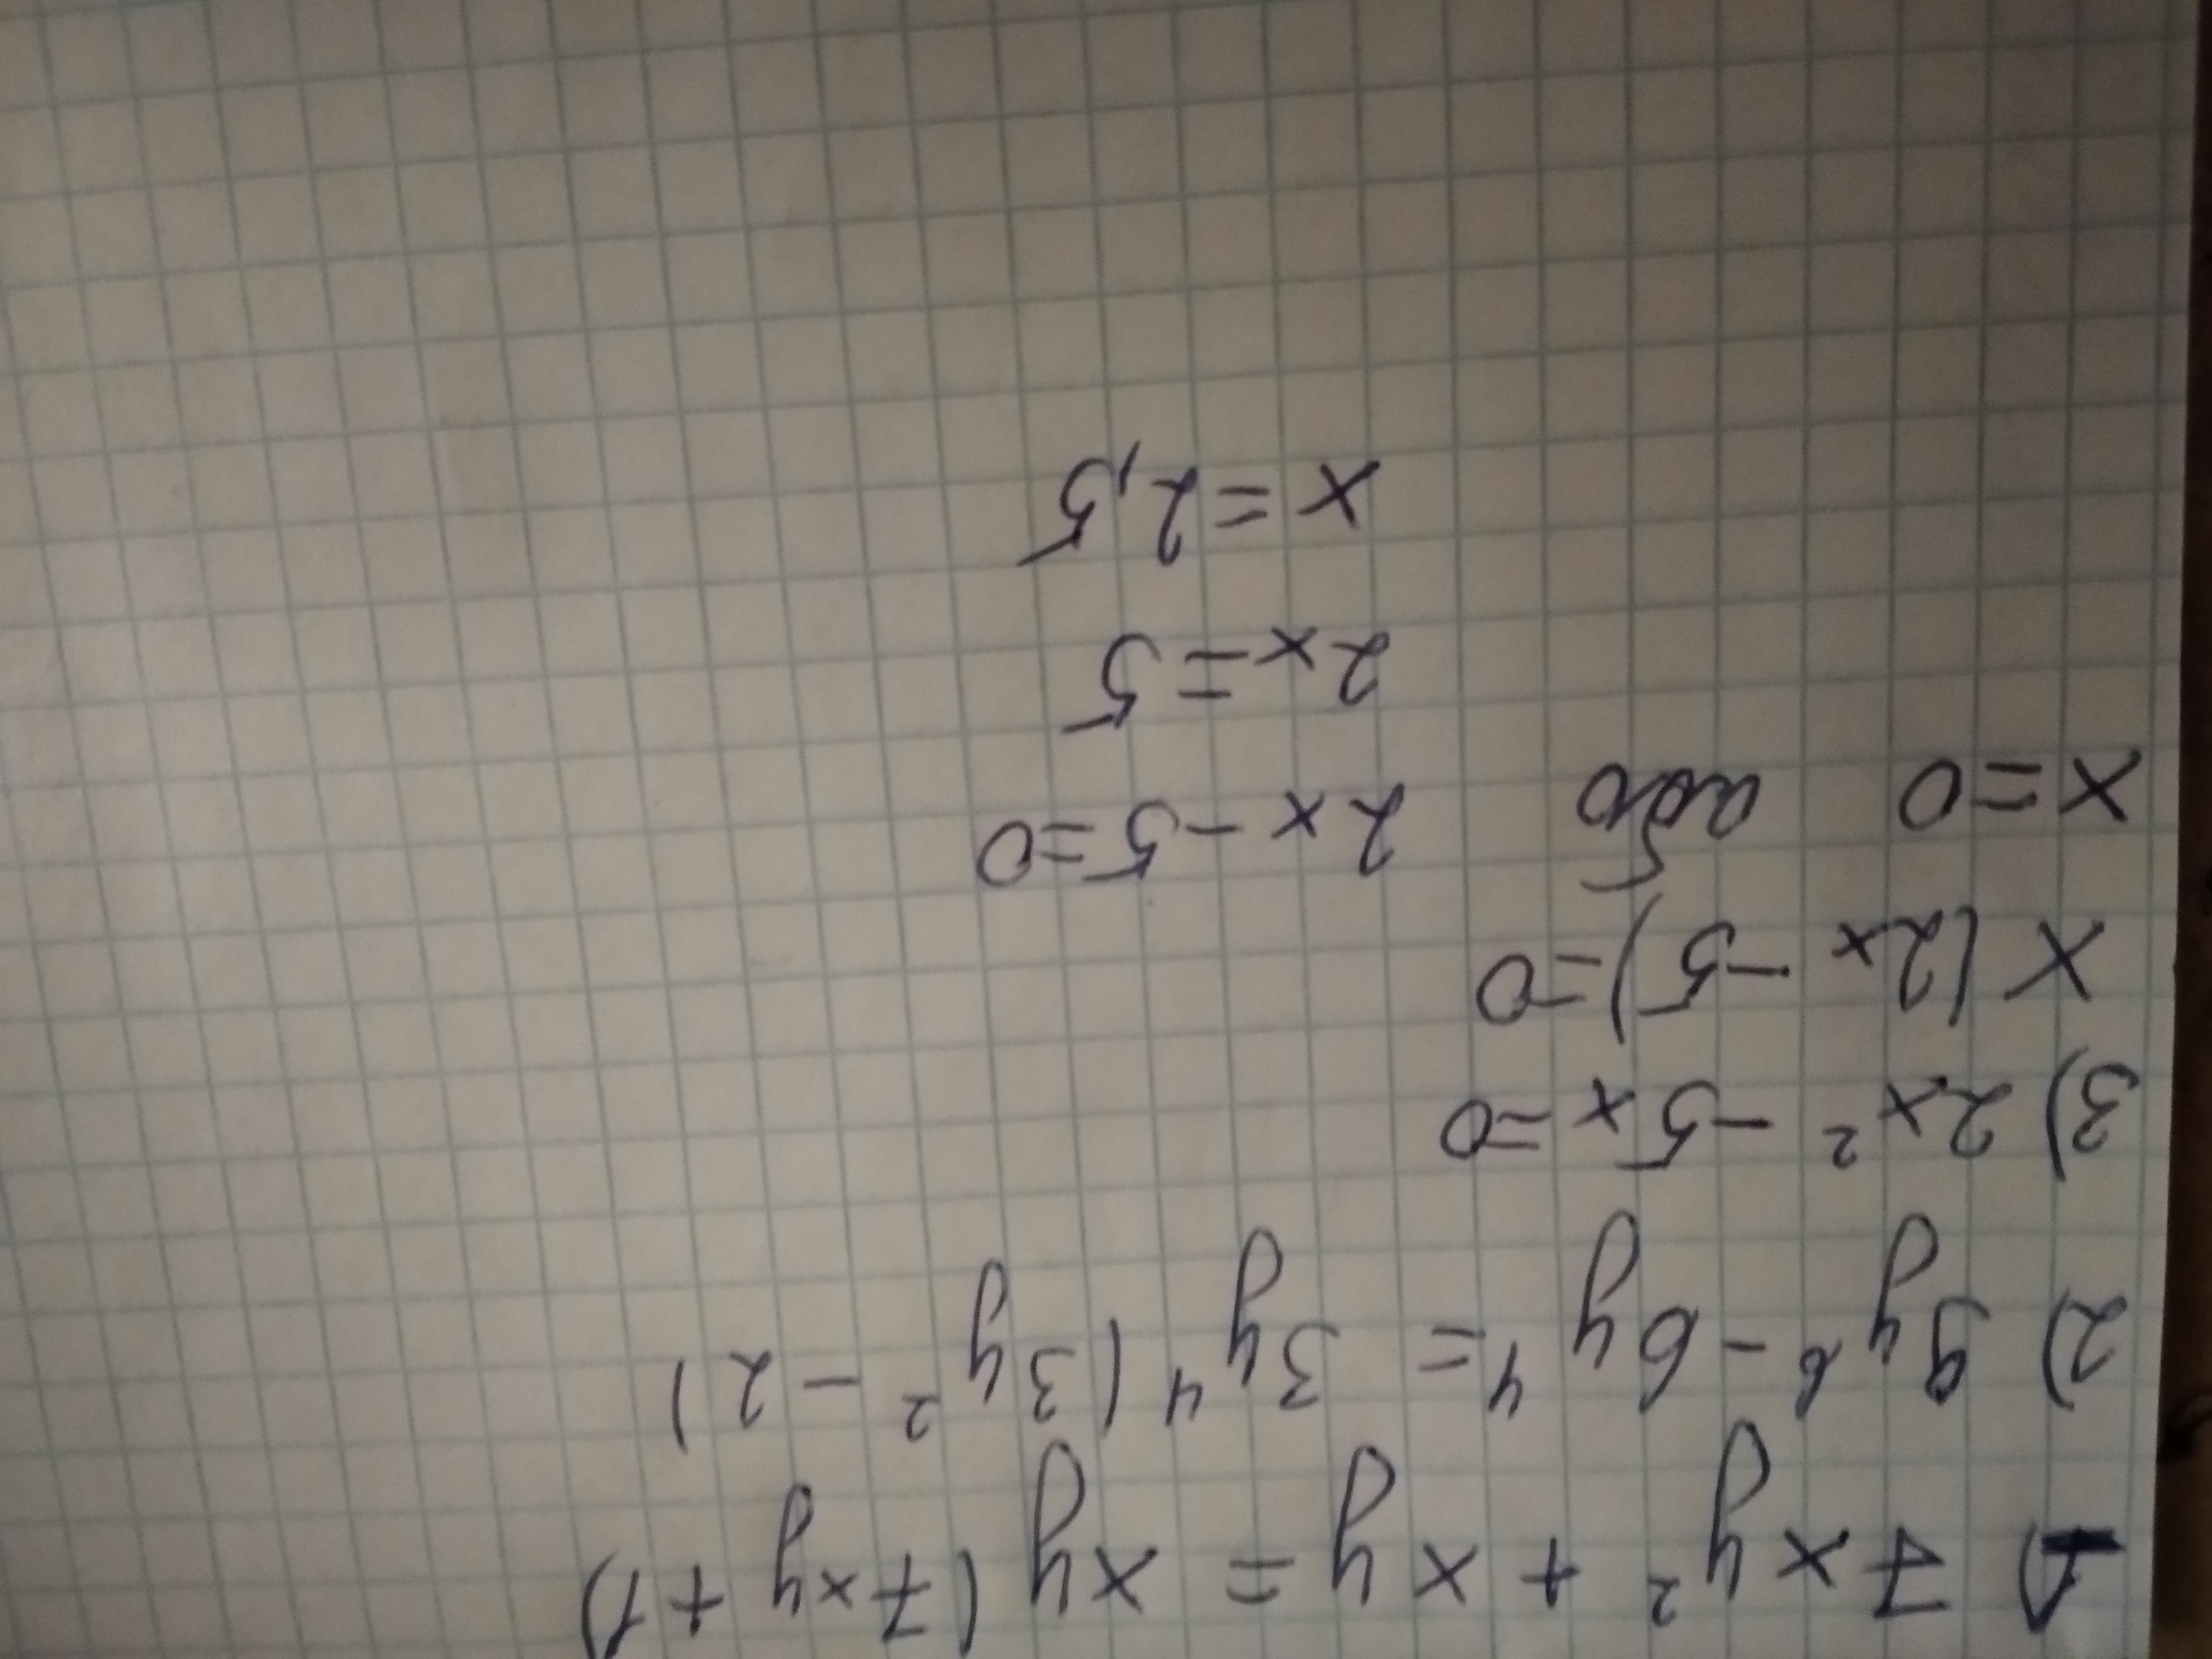 1) 7xy² + xy = xy (7xy + 1)
2) 9y⁶ - 6y⁴ = 3y⁴ (3y² - 2)
3) 2x² - 5x = 0
x (2x - 5) = 0
x = 0 або 2x - 5 = 0
2x = 5
x = 2,5